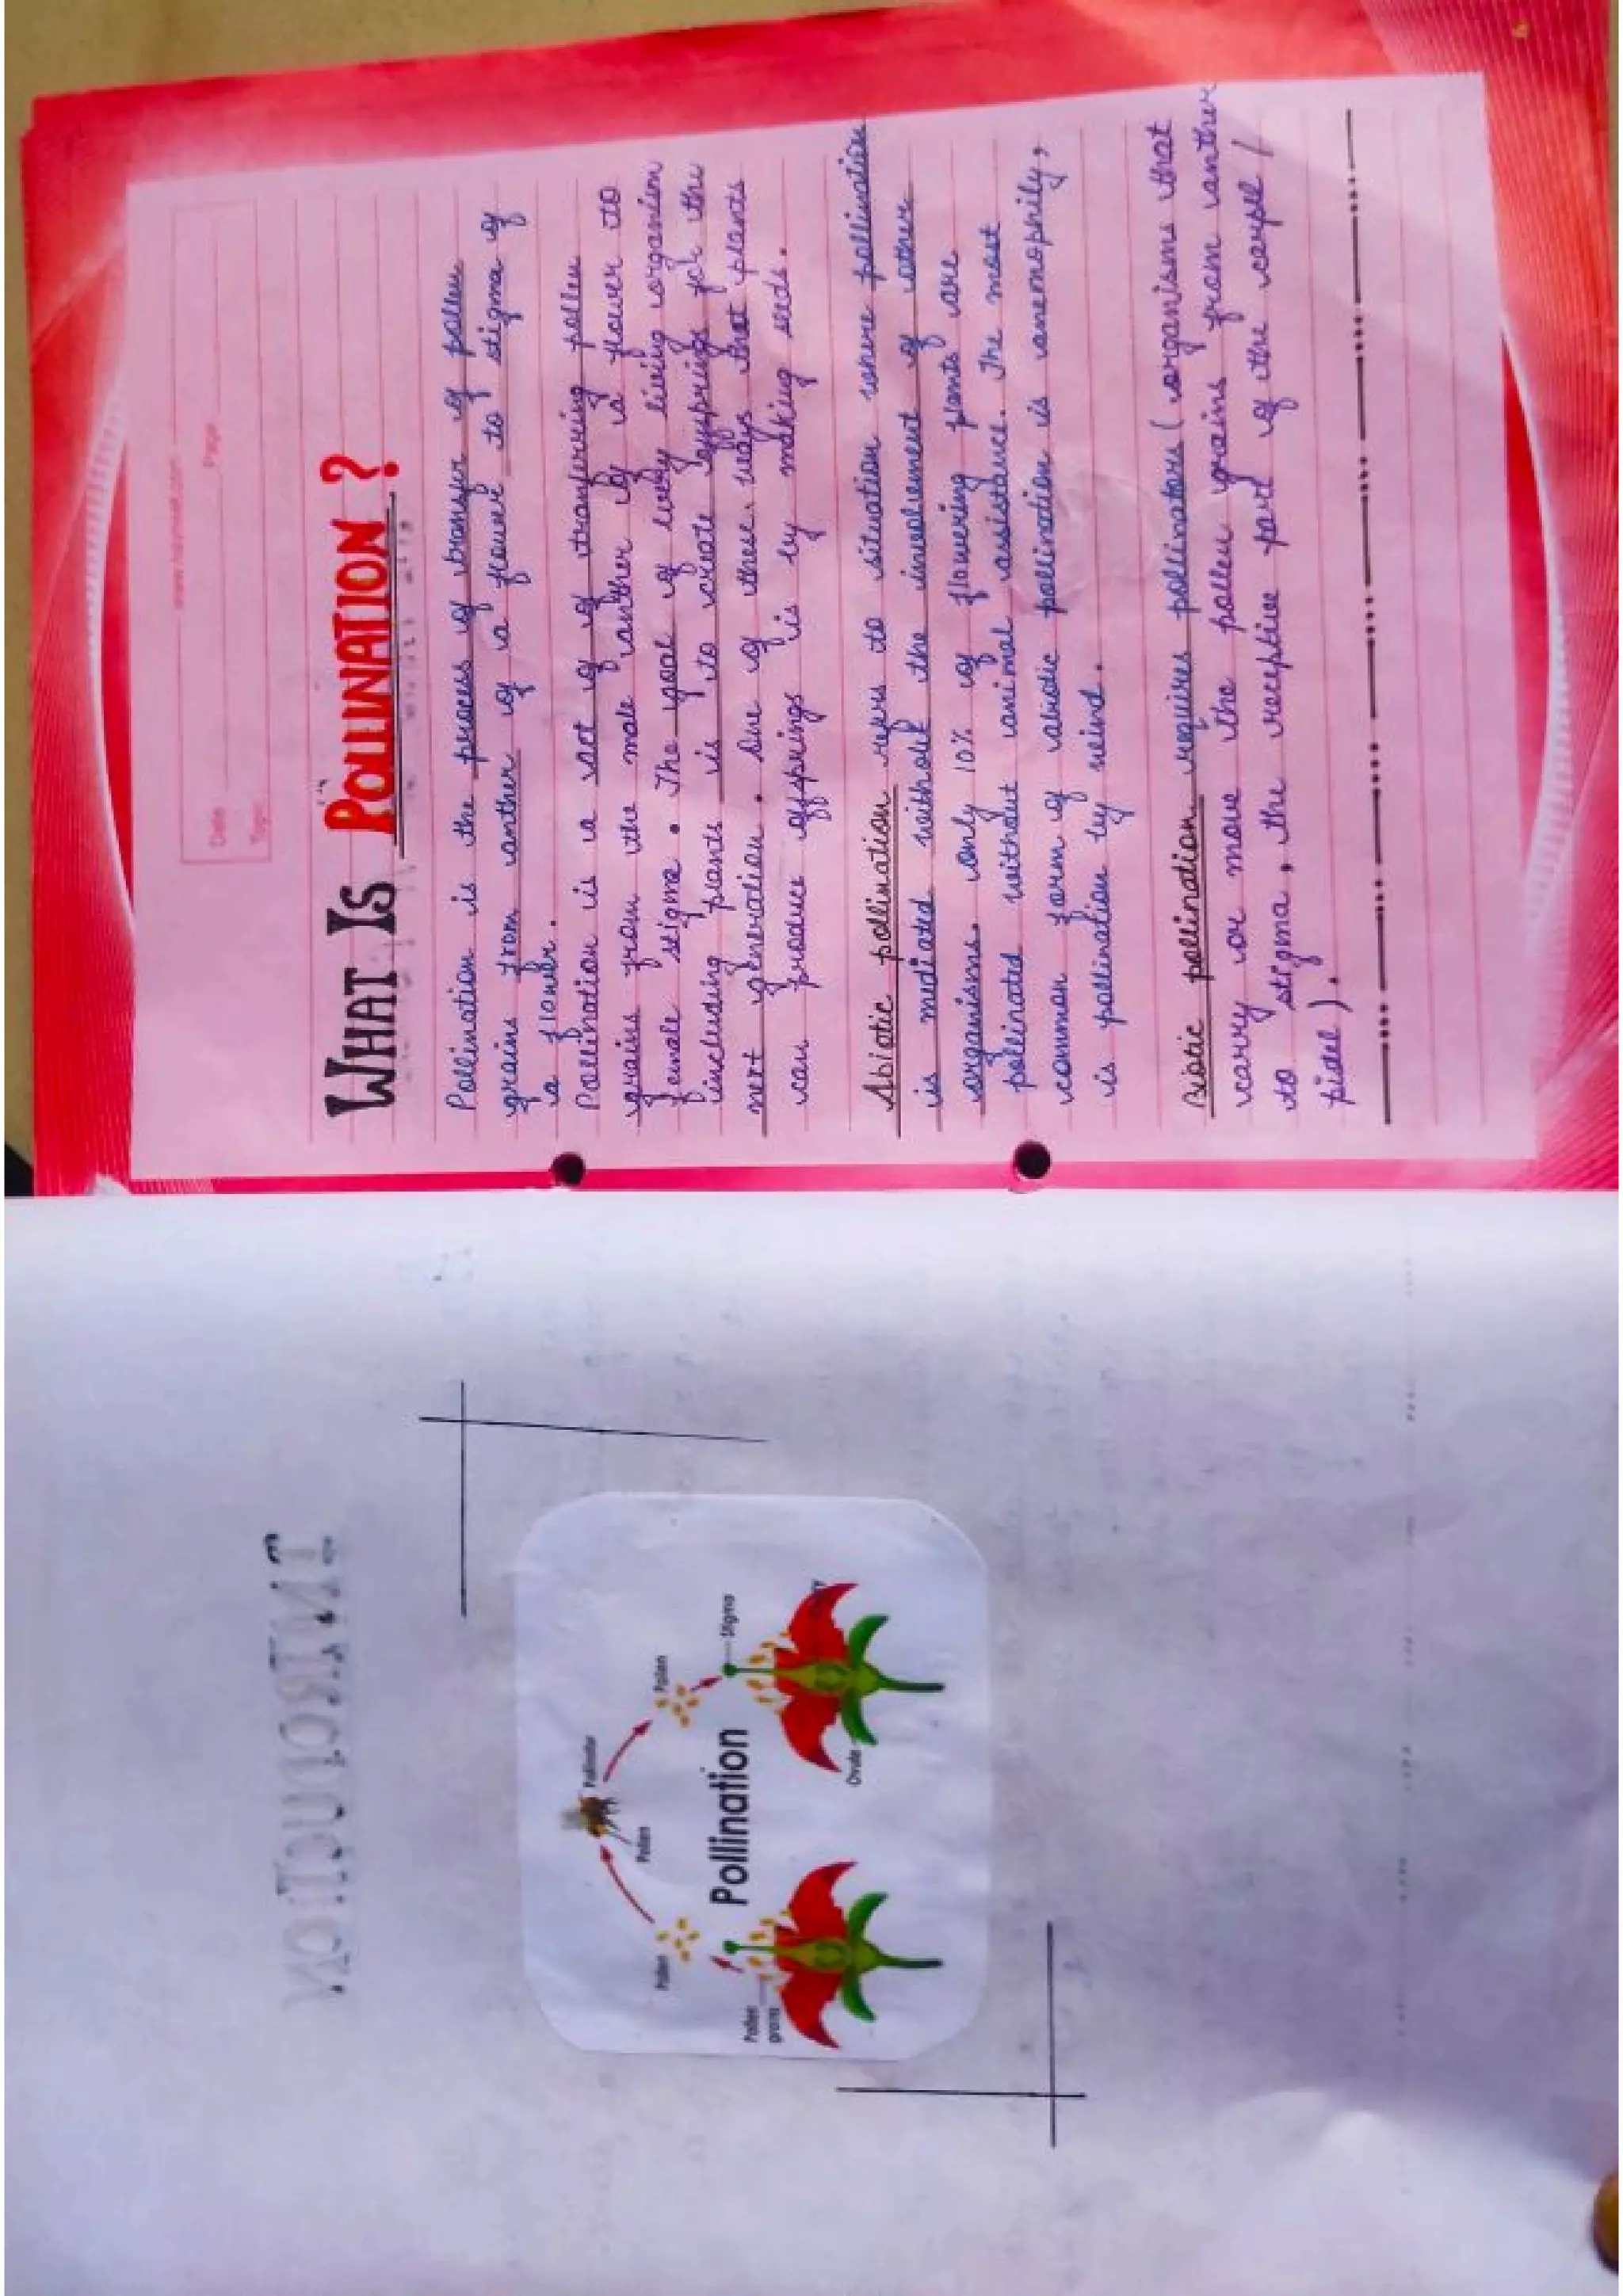 Date
Page
Topic
WHAT IS POLLINATION ?
Pollination is the process of transfer of pollen
grains from anther of a flower to stigma of
a flower.
Pollination is a act of of tranferring pollen
grains from the male anther of a flower to
female stigma. The goal of every living organism
including plants is to create offsprings for the
next generation. One of these ways that plants
can produce offsprings is by making seeds.
Abiotic pollination refers to situation where pollination
is mediated without the involvement of other
organisms. only 10% of flowering plants are
pollinated without animal assistance. The most
common form of abiotic pollination is anemophily,
is pollination by wind.
Biotic pollination requires pollinators ( organisms that
carry or move the pollen grains from anther
to stigma, the receptive part of the carpel /
pistil ).
INTRODUCTION
Pollinator
Pollen
Pollen
Pollen
Stigma
Pollination
Pollen
grains
Ovule